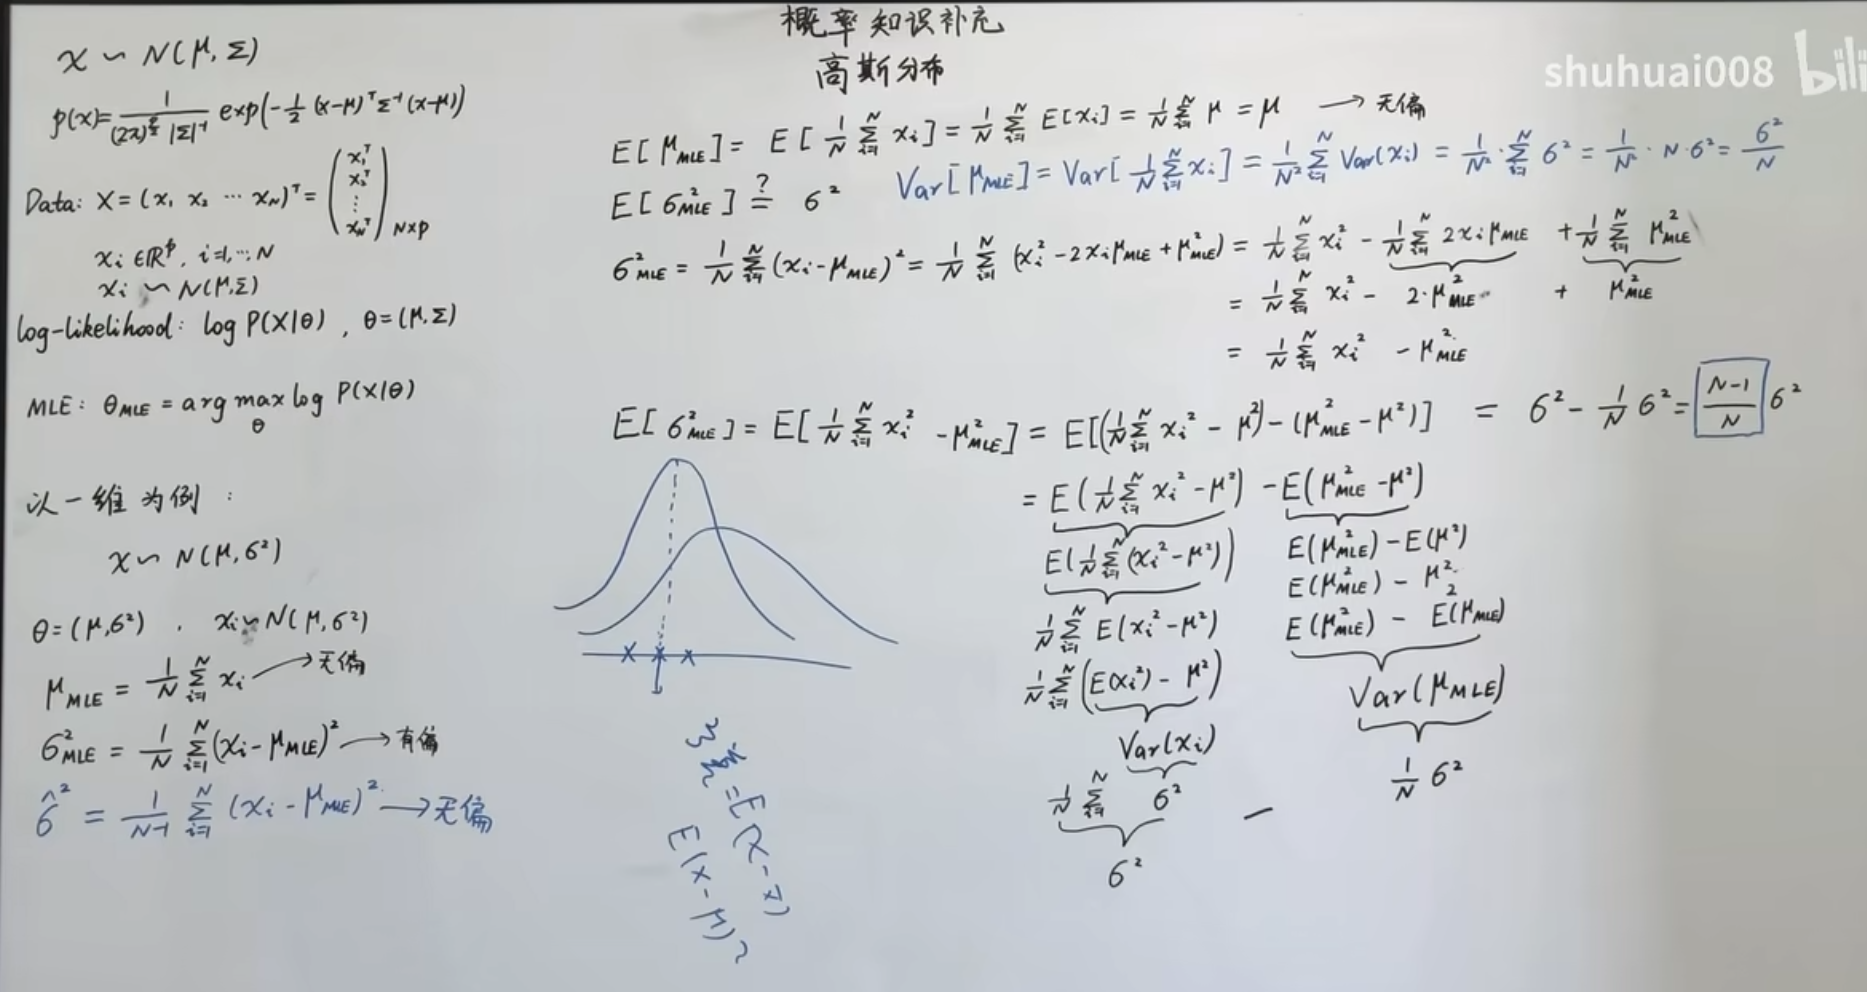 概率知识补充
高斯分布
shuhuai008 bili
x ~ N(μ, Σ)
p(x)= 1/((2π)^{p/2} |Σ|^{-1}) exp(-1/2 (x-μ)ᵀ Σ⁻¹ (x-μ))
Data: X = (x₁ x₂ ⋯ x_N)ᵀ = (x₁ᵀ x₂ᵀ ⋮ x_Nᵀ) N×p
xᵢ ∈ ℝᵖ, i=1,⋯,N
xᵢ ~ N(μ,Σ)
log-likelihood: log P(X|θ), θ=(μ,Σ)
MLE: θ_MLE = arg max_θ log P(X|θ)
以一维为例:
x ~ N(μ,σ²)
θ=(μ,σ²), xᵢ ~ N(μ,σ²)
μ_MLE = 1/N Σ_{i=1}^N xᵢ → 无偏
σ²_MLE = 1/N Σ_{i=1}^N (xᵢ-μ_MLE)² → 有偏
σ̂² = 1/(N-1) Σ_{i=1}^N (xᵢ-μ_MLE)² → 无偏
E[μ_MLE] = E[1/N Σ_{i=1}^N xᵢ] = 1/N Σ_{i=1}^N E[xᵢ] = 1/N Σ_{i=1}^N μ = μ → 无偏
Var[μ_MLE] = Var[1/N Σ_{i=1}^N xᵢ] = 1/N² Σ_{i=1}^N Var(xᵢ) = 1/N² · Σ_{i=1}^N σ² = 1/N² · N·σ² = σ²/N
E[σ²_MLE] =? σ²
σ²_MLE = 1/N Σ_{i=1}^N (xᵢ-μ_MLE)² = 1/N Σ_{i=1}^N (xᵢ²-2xᵢμ_MLE+μ²_MLE) = 1/N Σ_{i=1}^N xᵢ² - 1/N Σ_{i=1}^N 2xᵢμ_MLE + 1/N Σ_{i=1}^N μ²_MLE
= 1/N Σ_{i=1}^N xᵢ² - 2·μ²_MLE + μ²_MLE
= 1/N Σ_{i=1}^N xᵢ² - μ²_MLE
E[σ²_MLE] = E[1/N Σ_{i=1}^N xᵢ² - μ²_MLE] = E[(1/N Σ_{i=1}^N xᵢ² - μ²) - (μ²_MLE - μ²)] = σ² - 1/N σ² = (N-1)/N σ²
= E(1/N Σ_{i=1}^N xᵢ² - μ²) - E(μ²_MLE - μ²)
E(1/N Σ_{i=1}^N (xᵢ² - μ²))
1/N Σ_{i=1}^N E(xᵢ² - μ²)
1/N Σ_{i=1}^N (E(xᵢ²) - μ²)
Var(xᵢ)
1/N Σ_{i=1}^N σ² -
σ²
E(μ²_MLE) - E(μ²)
E(μ²_MLE) - μ²
E(μ²_MLE) - E²(μ_MLE)
Var(μ_MLE)
1/N σ²
E(x-μ)²